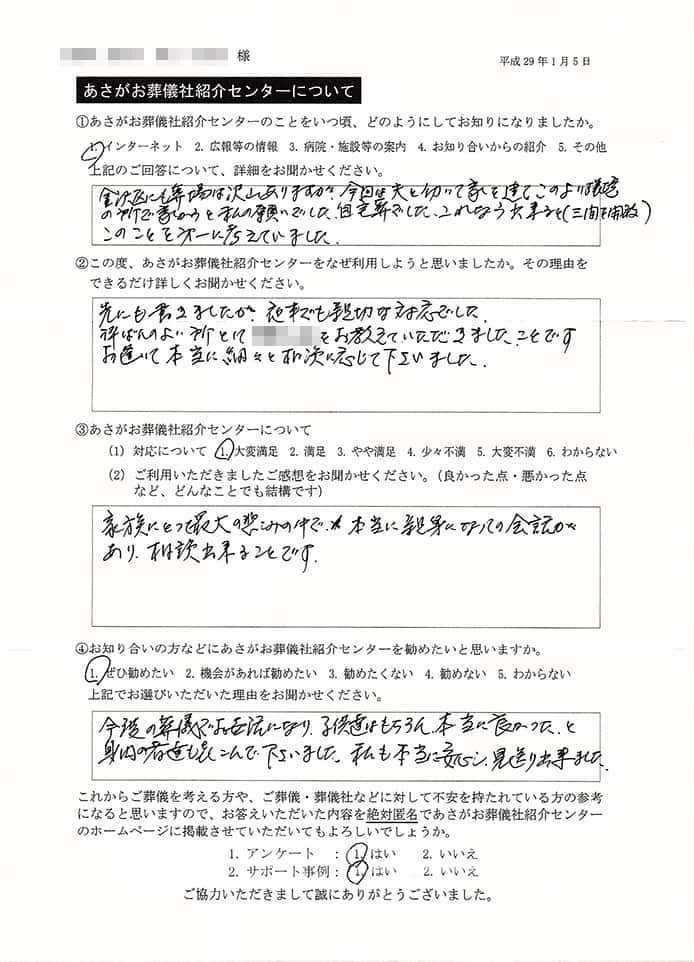 様
平成29年1月5日
あさがお葬儀社紹介センターについて
①あさがお葬儀社紹介センターのことをいつ頃、どのようにしてお知りになりましたか。
1. インターネット 2. 広報等の情報 3. 病院・施設等の案内 4. お知り合いからの紹介 5. その他
上記のご回答について、詳細をお聞かせください。
金沢区にも葬場は沢山ありますが、今回は夫と切いて家を建てこのよい環境
の所で家からと私の願いでした。自宅葬でした。これなら出来ると(三間を開放)
このことを第一に考えていました。
②この度、あさがお葬儀社紹介センターをなぜ利用しようと思いましたか。その理由を
できるだけ詳しくお聞かせください。
先にも書きましたが、夜中でも親切な対応でした。
評ばんのよい所として をお教えていただきました、ことです
お逢いて本当に納々と相談に応じて下さいました。
③あさがお葬儀社紹介センターについて
(1) 対応について 1. 大変満足 2. 満足 3. やや満足 4. 少々不満 5. 大変不満 6. わからない
(2) ご利用いただきましたご感想をお聞かせください。(良かった点・悪かった点
など、どんなことでも結構です)
家族にとって最大の悲しみの中で、本当に親身になっての会話が
あり、相談出来ることです。
④お知り合いの方などにあさがお葬儀社紹介センターを勧めたいと思いますか。
1. ぜひ勧めたい 2. 機会があれば勧めたい 3. 勧めたくない 4. 勧めない 5. わからない
上記でお選びいただいた理由をお聞かせください。
今後の葬儀でお世話になり、子供達はもちろん、本当に良かった、と
身内の者達も喜こんで下さいました。私も本当に安心し、見送り出来ました。
これからご葬儀を考える方や、ご葬儀・葬儀社などに対して不安を持たれている方の参考
になると思いますので、お答えいただいた内容を絶対匿名であさがお葬儀社紹介センター
のホームページに掲載させていただいてもよろしいでしょうか。
1. アンケート : 1. はい 2. いいえ
2. サポート事例 : 1. はい 2. いいえ
ご協力いただきまして誠にありがとうございました。